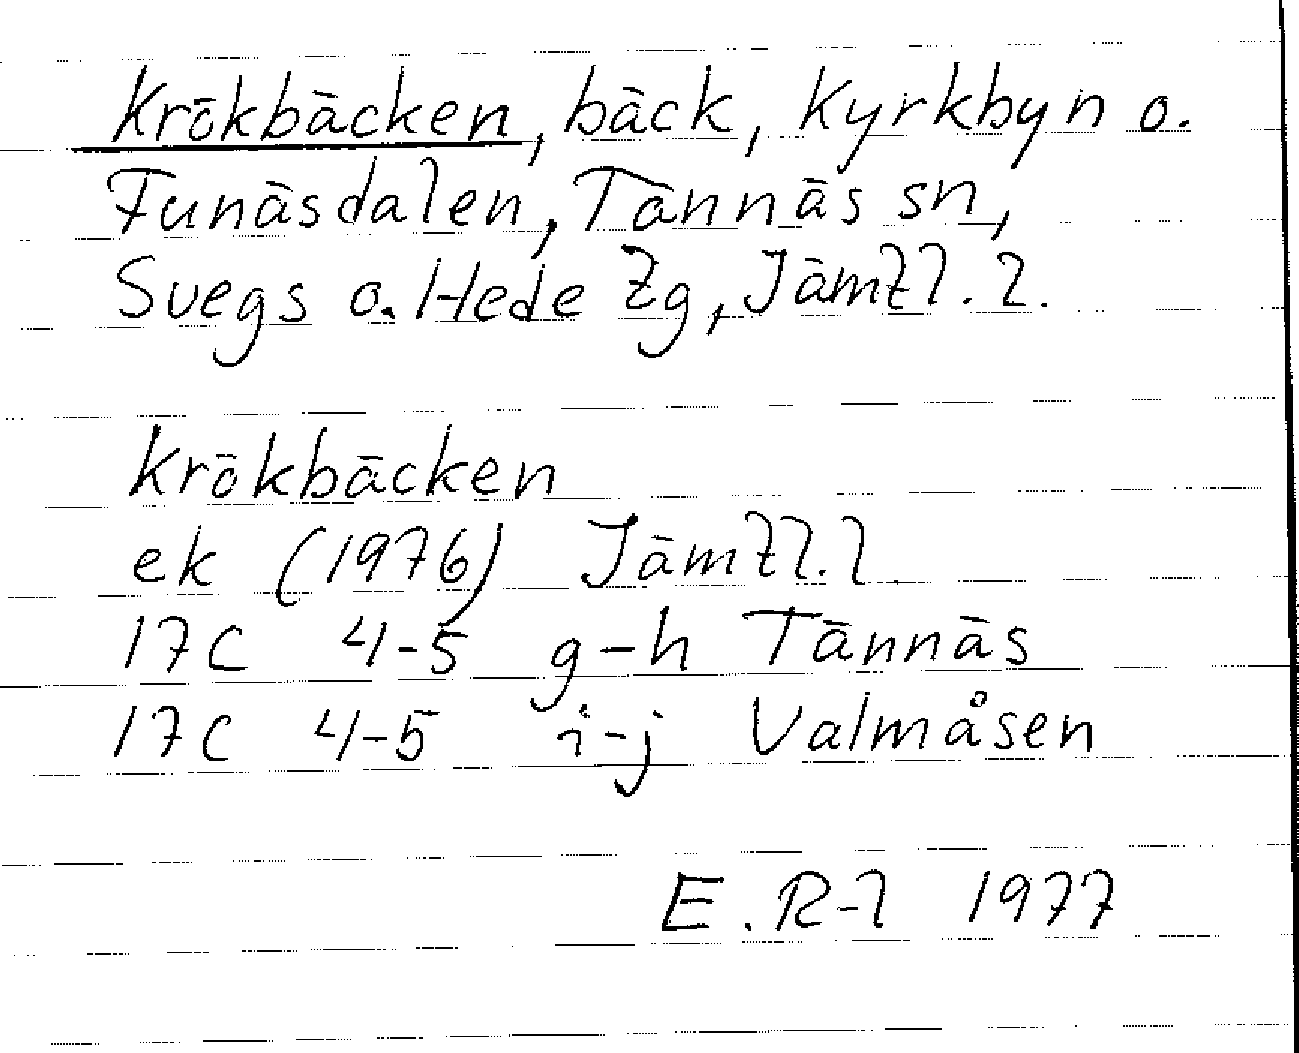 Krökbäcken, bäck, Kyrkbyn o.
Funäsdalen, Tännäs sn,
Svegs o. Hede tg, Jämtl. l.
Krökbäcken
ek (1976) Jämtl. l.
17C 4-5 g-h Tännäs
17C 4-5 i-j Valmåsen
E. R-l 1977